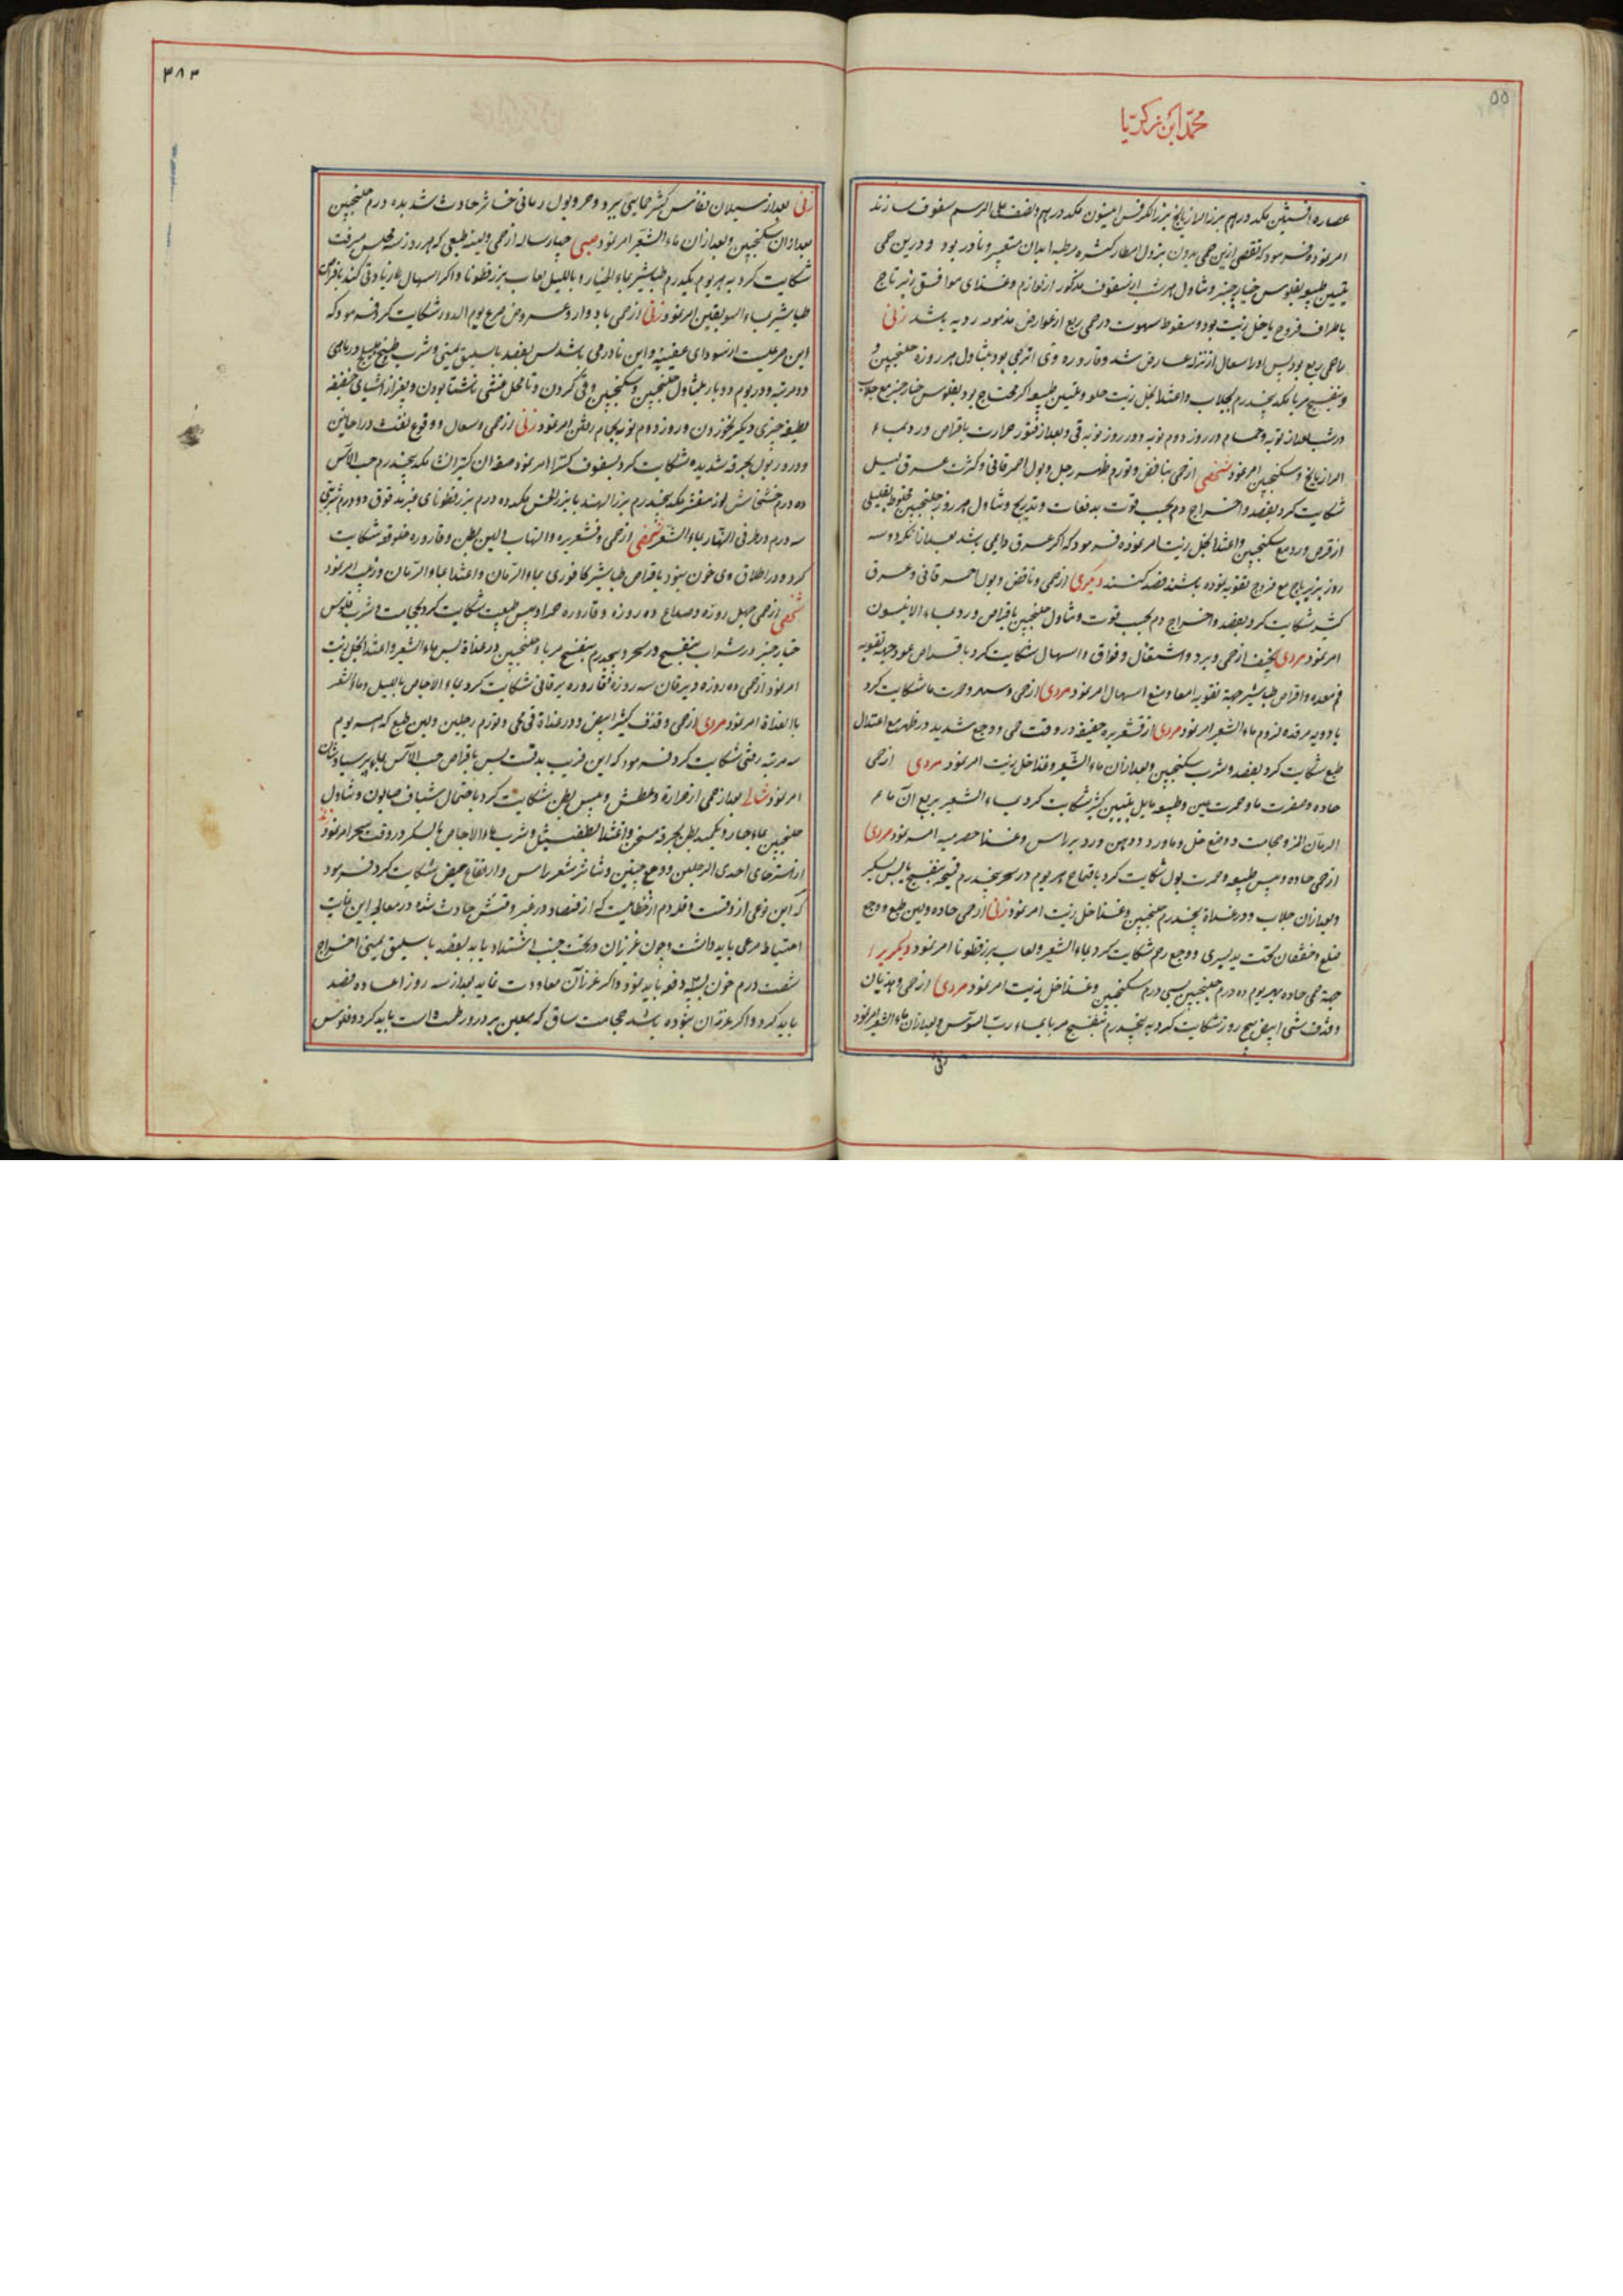 محمد ابن زکریا
۵۵
عصاره افسنتین یکدرهم بزر الرازیانج بزر الکرفس انیسون یکدرهم ونصف علی الرسم سفوف سازند
امر نمود و فرمود که تقصی ازین حمی بدون بزول امطار کثیره مرطبه ابدان متعسر و نادر بود و درین حمی
بتلیین طبیعه بفلوس خیارچنبر و تناول مرث از سفوف مذکور از لوازم و غذای موافق زیرباج
باطراف فروج یا خل زیت بود و سقوط شهوت در حمی ربع از عوارض مذمومه ردیه باشد زنی
را حمی ربع بود پس او را سعال از نزله عارض شد و قاروره وی اترجی بود بتناول هر روزه جلنجبین و
بنفسج مربا یکد پنجدرم بجلاب و اغتذا بخل زیت حلو و تلیین طبیعه اکر محتاج بود بفلوس خیارچنبر مع جلاب
در شب بعد از نوبه و حمام در روز دوم نوبه و در روز نوبه قی و بعد از فتور حرارت باقراص ورد بماء
الرازیانج و سکنجبین امر نمود شخصی از حمی بنافض و تورم ظهر رجل و بول احمر قانی و کثرت عرق لیل
شکایت کرد بفصد و اخراج دم بحسب قوت بدفعات و تدریج و تناول هر روز جلنجبین مخلوط بقلیلی
از قرص ورد مع سکنجبین و اغتذا بخل زیت امر نموده فرمود که اکر عرق دایمی باشد بعد از آنکه دو سه
روز بزیرباج مع فروج تقویه نموده باشند فصد کنند دیکری از حمی و نافض و بول احمر قانی و عرق
کثیر شکایت کرد بفصد و اخراج دم بحسب قوت و تناول جلنجبین باقراص ورد بماء الانیسون
امر نمود مردی نحیف از حمی و برد و اشتعال و فواق و اسهال شکایت کرد باقراص عود جهة تقویه
فم معده و اقراص طباشیر جهة تقویه امعا و منع اسهال امر نمود مردی از حمی و سهر و حمرت ما شکایت کرد
بادویه مرقده و لزوم ماء الشعیر امر نمود مردی از قشعریره خفیفه در وقت حمی و وجع شدید در ظهر مع اعتدال
طبع شکایت کرد بفصد و شرب سکنجبین و بعد از آن ماء الشعیر و غذا خل زیت امر نمود مردی از حمی
حاده و صفرت ما و حمرت عین و طبیعه مایل بتلیین کثیر شکایت کرد بماء الشعیر بربع آن ماء
الرمان المز و حجامت و وضع خل و ماورد و دهن ورد بر راس و غذا حصرمیه امر نمود مردی
از حمی حاده و یبس طبیعه و حمرت بول شکایت کرد باقماح هر یوم در سحر پنجدرم قمیحه بنفسج یابس بسکر
و بعد از آن جلاب و در غداة پنجدرم جلنجبین و غذا خل زیت امر نمود زنی از حمی حاده و لین طبع و وجع
ضلع و خفقان تحت ید یسری و وجع رحم شکایت کرد بماء الشعیر و لعاب بزرقطونا امر نمود دیکریرا
جهة حمی حاده بهر یوم ده درم جلنجبین بسی درم سکنجبین و غذا خل زیت امر نمود مردی از حمی و هذیان
و قذف شئ ابیض پنج روز شکایت کرد به پنجدرم بنفسج مربا بماء رب السوس و بعد از آن ماء الشعیر امر نمود
زنی
۳۸۳
زنی بعد از سیلان نفاس کثیر حمایی ببرد و حر و بول رمانی خاثر حادث شد بده درم جلنجبین
بعد از آن سکنجبین و بعد از آن ماء الشعیر امر نمود صبی چهارساله از حمی ولینة طبعی که هر روز سه مجلس میرفت
شکایت کرد به هر یوم یکدرم طباشیر بماء الخیار و باللیل لعاب بزرقطونا و اکر اسهال بماء زیادتی کند باقراص
طباشیر بماء السویقین امر نمود زنی از حمی بادوار و عروض صرع یوم الدور شکایت کرد فرمود که
این صرعیست از سودای عفینه و این نادر می باشد پس بفصد باسلیق یمنی و شرب طبیخ هلیلج در ماهی
دو مرتبه و در یوم دو بار بتناول جلنجبین و سکنجبین و قی کردن و تا محل عشی ناشتا بودن و بغیر از اشیای خفیفه
لطیفه چیزی دیکر نخوردن و روز دوم نوبه بحمام رفتن امر نمود زنی از حمی و سعال و وقوع نفث در احایین
و درور بول بحرقة شدیده شکایت کرد بسفوف کثیرا امر نمود صفة آن کثیرا نشا یکد پنجدرم حب الآس
ده درم خشخاش لوز مقشر یکد پنجدرم بزر الهندبا بزر الخس یکد ده درم بزرقطونای غیر مدقوق دو درم شربتی
سه درم در طرفی النهار بماء الشعیر شخصی از حمی و قشعریره و التهاب و لین بطن و قاروره خلوقیه شکایت
کرد و در اطلاق وی خون نبود باقراص طباشیر کافوری بماء الرمان و اغتذا بماء الرمان و زبیب امر نمود
شخصی از حمی چهل روزه و صداع ده روزه و قاروره حمرا و یبس طبیعت شکایت کرد بحجامت و شرب فلوس
خیارچنبر در شراب بنفسج در سحر و پنجدرم بنفسج مربا و جلنجبین در غداة پس ماء الشعیر و اغتذا بخل زیت
امر نمود از حمی ده روزه و یرقان سه روزه قاروره یرقانی شکایت کرد بماء الاجاص باللیل و ماء الشعیر
بالغداة امر نمود مردی از حمی و قذف کثیر ابیض و در غداة قی می و تورم رجلین و لین طبع که هر یوم
سه مرتبه رفتی شکایت کرد فرمود که این قریب بدقست پس باقراص حب الآس بماء پرسیاوشان
امر نمود شابی بعد از حمی از حرارة و عطش و یبس بطن شکایت کرد باحتمال شیاف صابون و تناول
جلنجبین بماء حار و تکمید بطن بحرقة مسخن و اغتذا بطفشیل و شرب ماء الاجاص بالسکر در وقت سحر امر نمود زنی
از استرخای احدی الرجلین و وجع جنبین و تناثر شعر راس و ارتفاع حیض شکایت کرد فرمود
که این نوعی از دقست و قله دم از خطائیست که از فصاد در غیر وقتش حادث شده در معالجه این غایت
احتیاط مرعی باید داشت و چون غرزان در تحت جنب اشتداد یابد بفصد باسلیق یمنی اخراج
شصت درم خون بسه دفعه باید نمود و اکر غرزان معاودت نماید بعد از سه روز اعاده فصد
باید کرد و اکر غرزان نبوده باشد حجامت ساق که معین بر درور طمث است باید کرد و فلوس